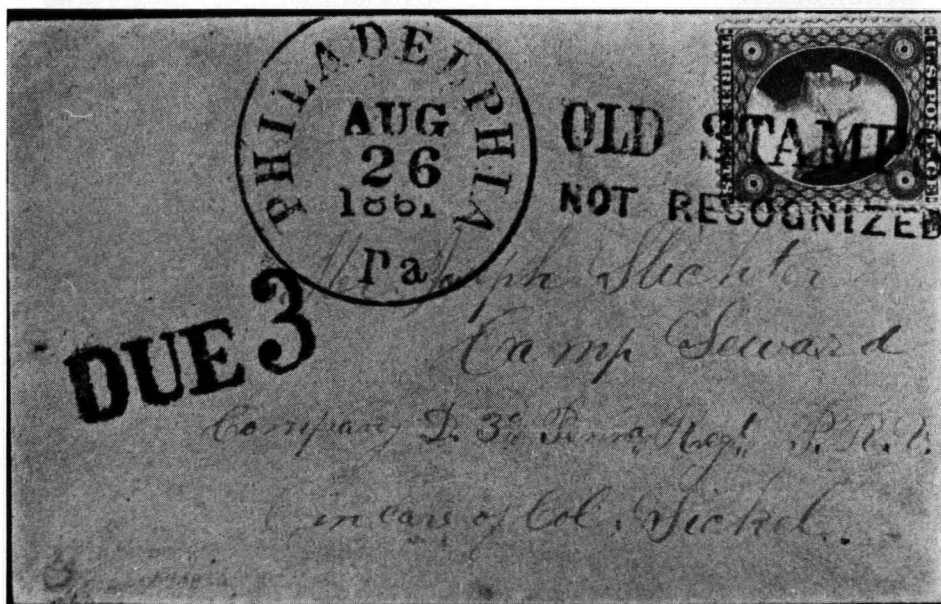 PHILADELPHIA
AUG
26
1861
Pa
OLD STAMPS
NOT RECOGNIZED
THREE CENTS
U.S. POSTAGE
DUE 3
Joseph Slichter
Camp Seward
Company D. 3d Penna Regt. P.R.V.
in care of Col. Sickel.